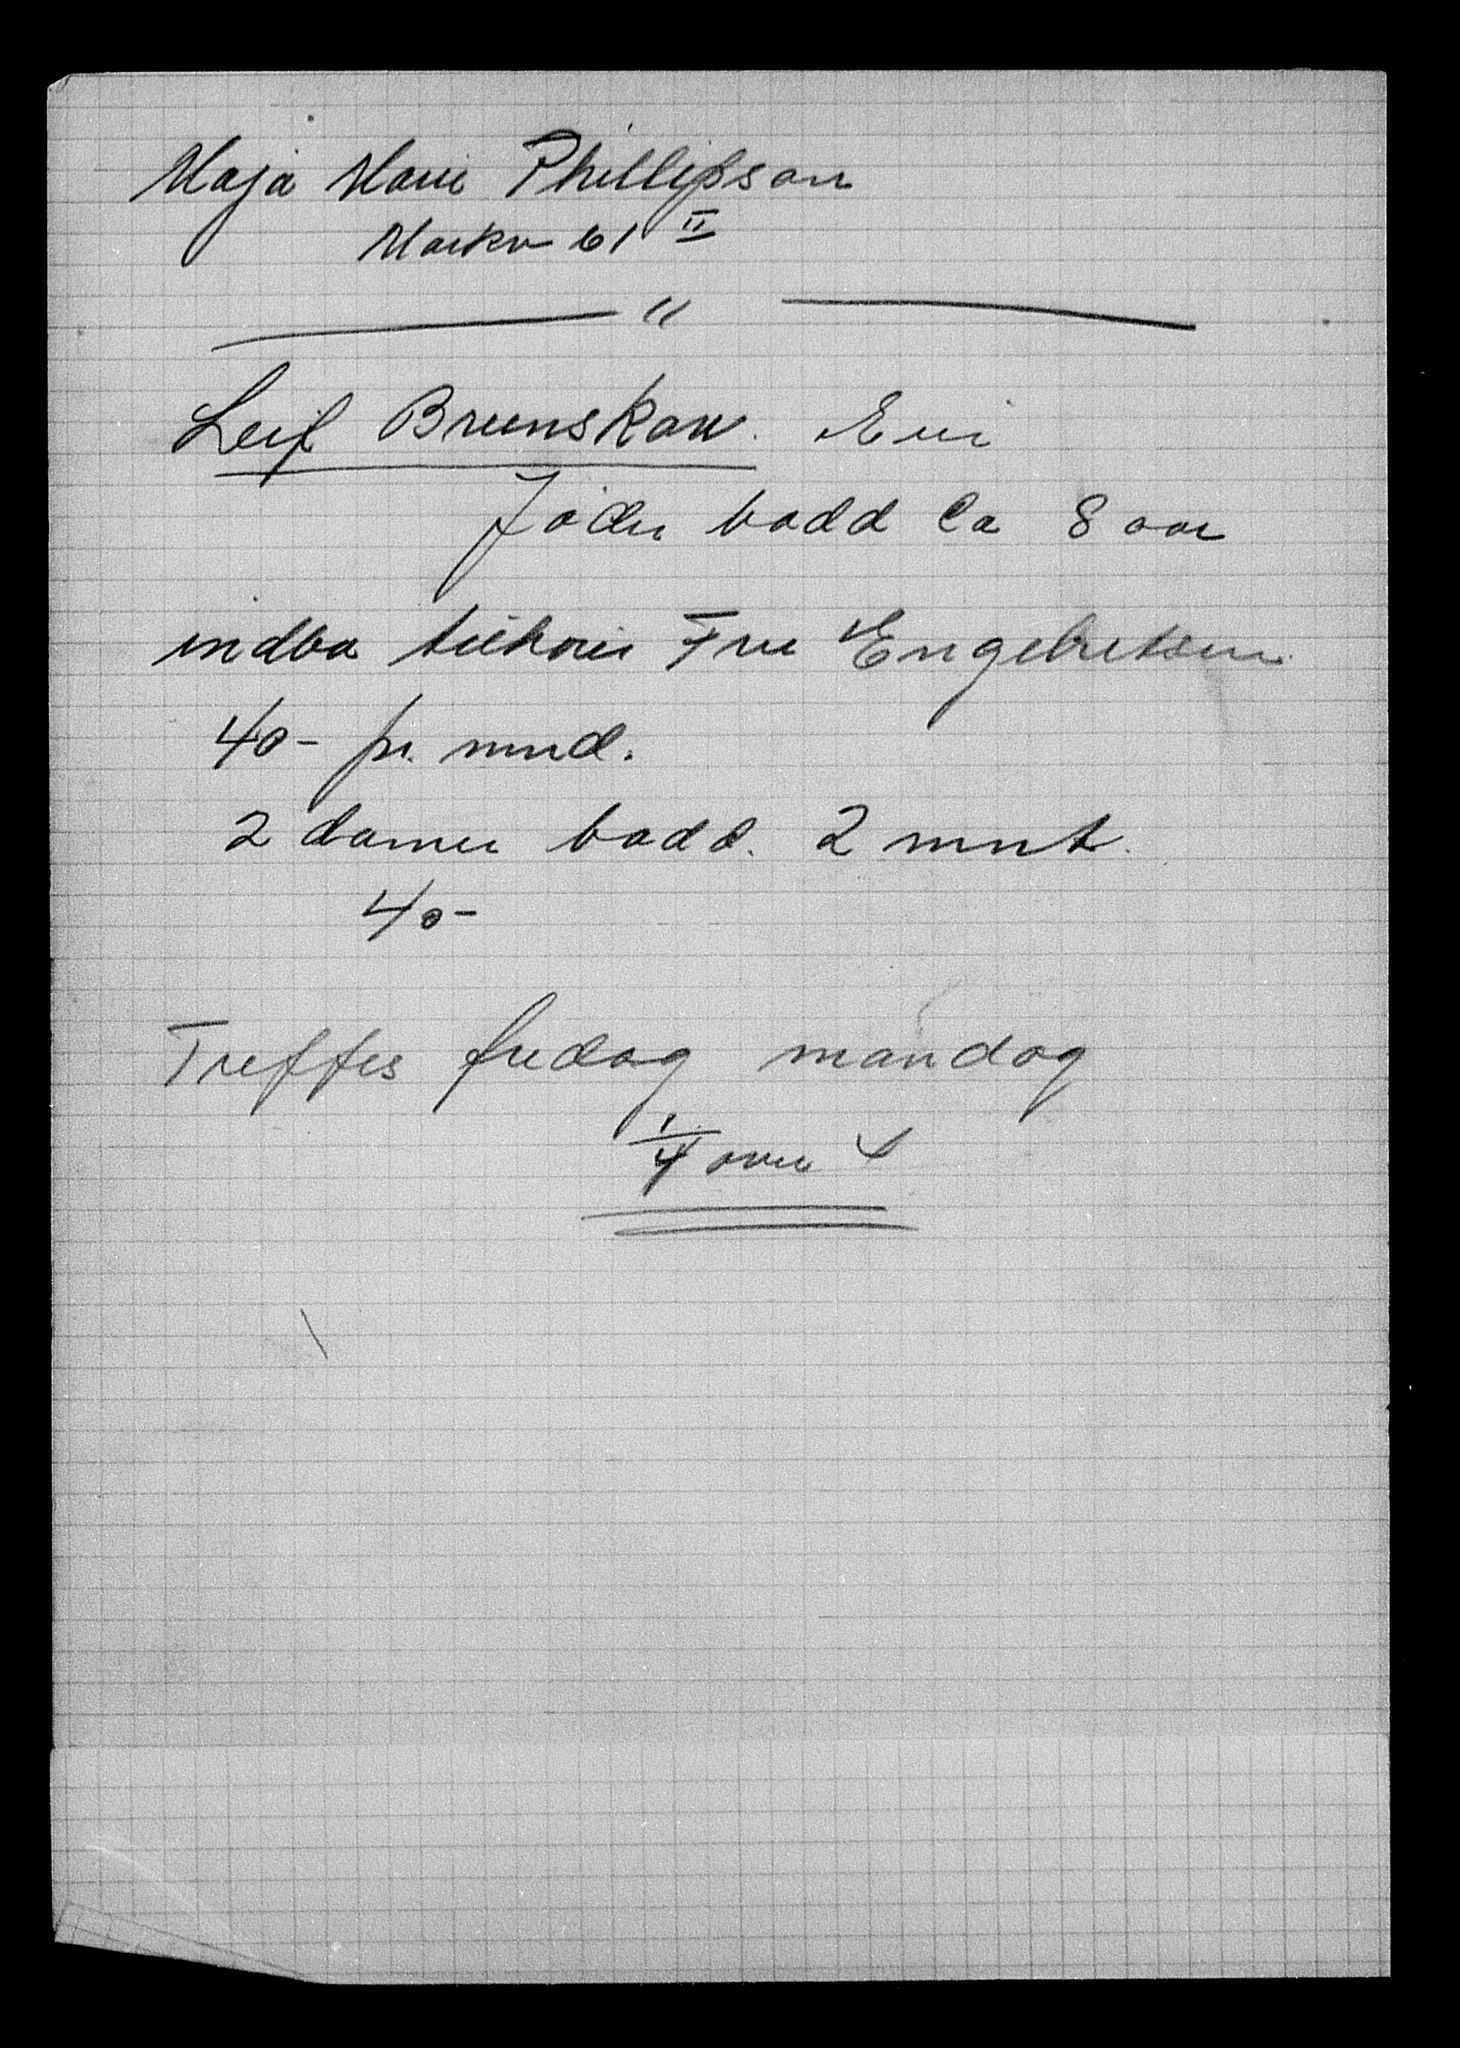 Maja Marie Phillipson
Markv 61 II
— " —
Leif Brunskow. Eier
Jøder bodd ca 8 aar
indbo tilhører Fru Engebretsen.
40- pr. mnd.
2 damer bodd. 2 mnt.
40-
Treffes fredag mandag
1/4 over 4